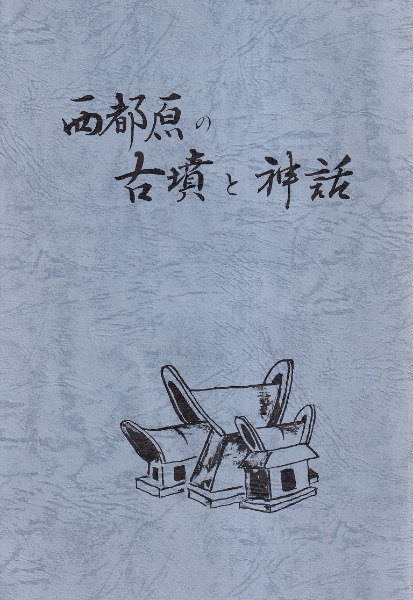 西都原の
古墳と神話